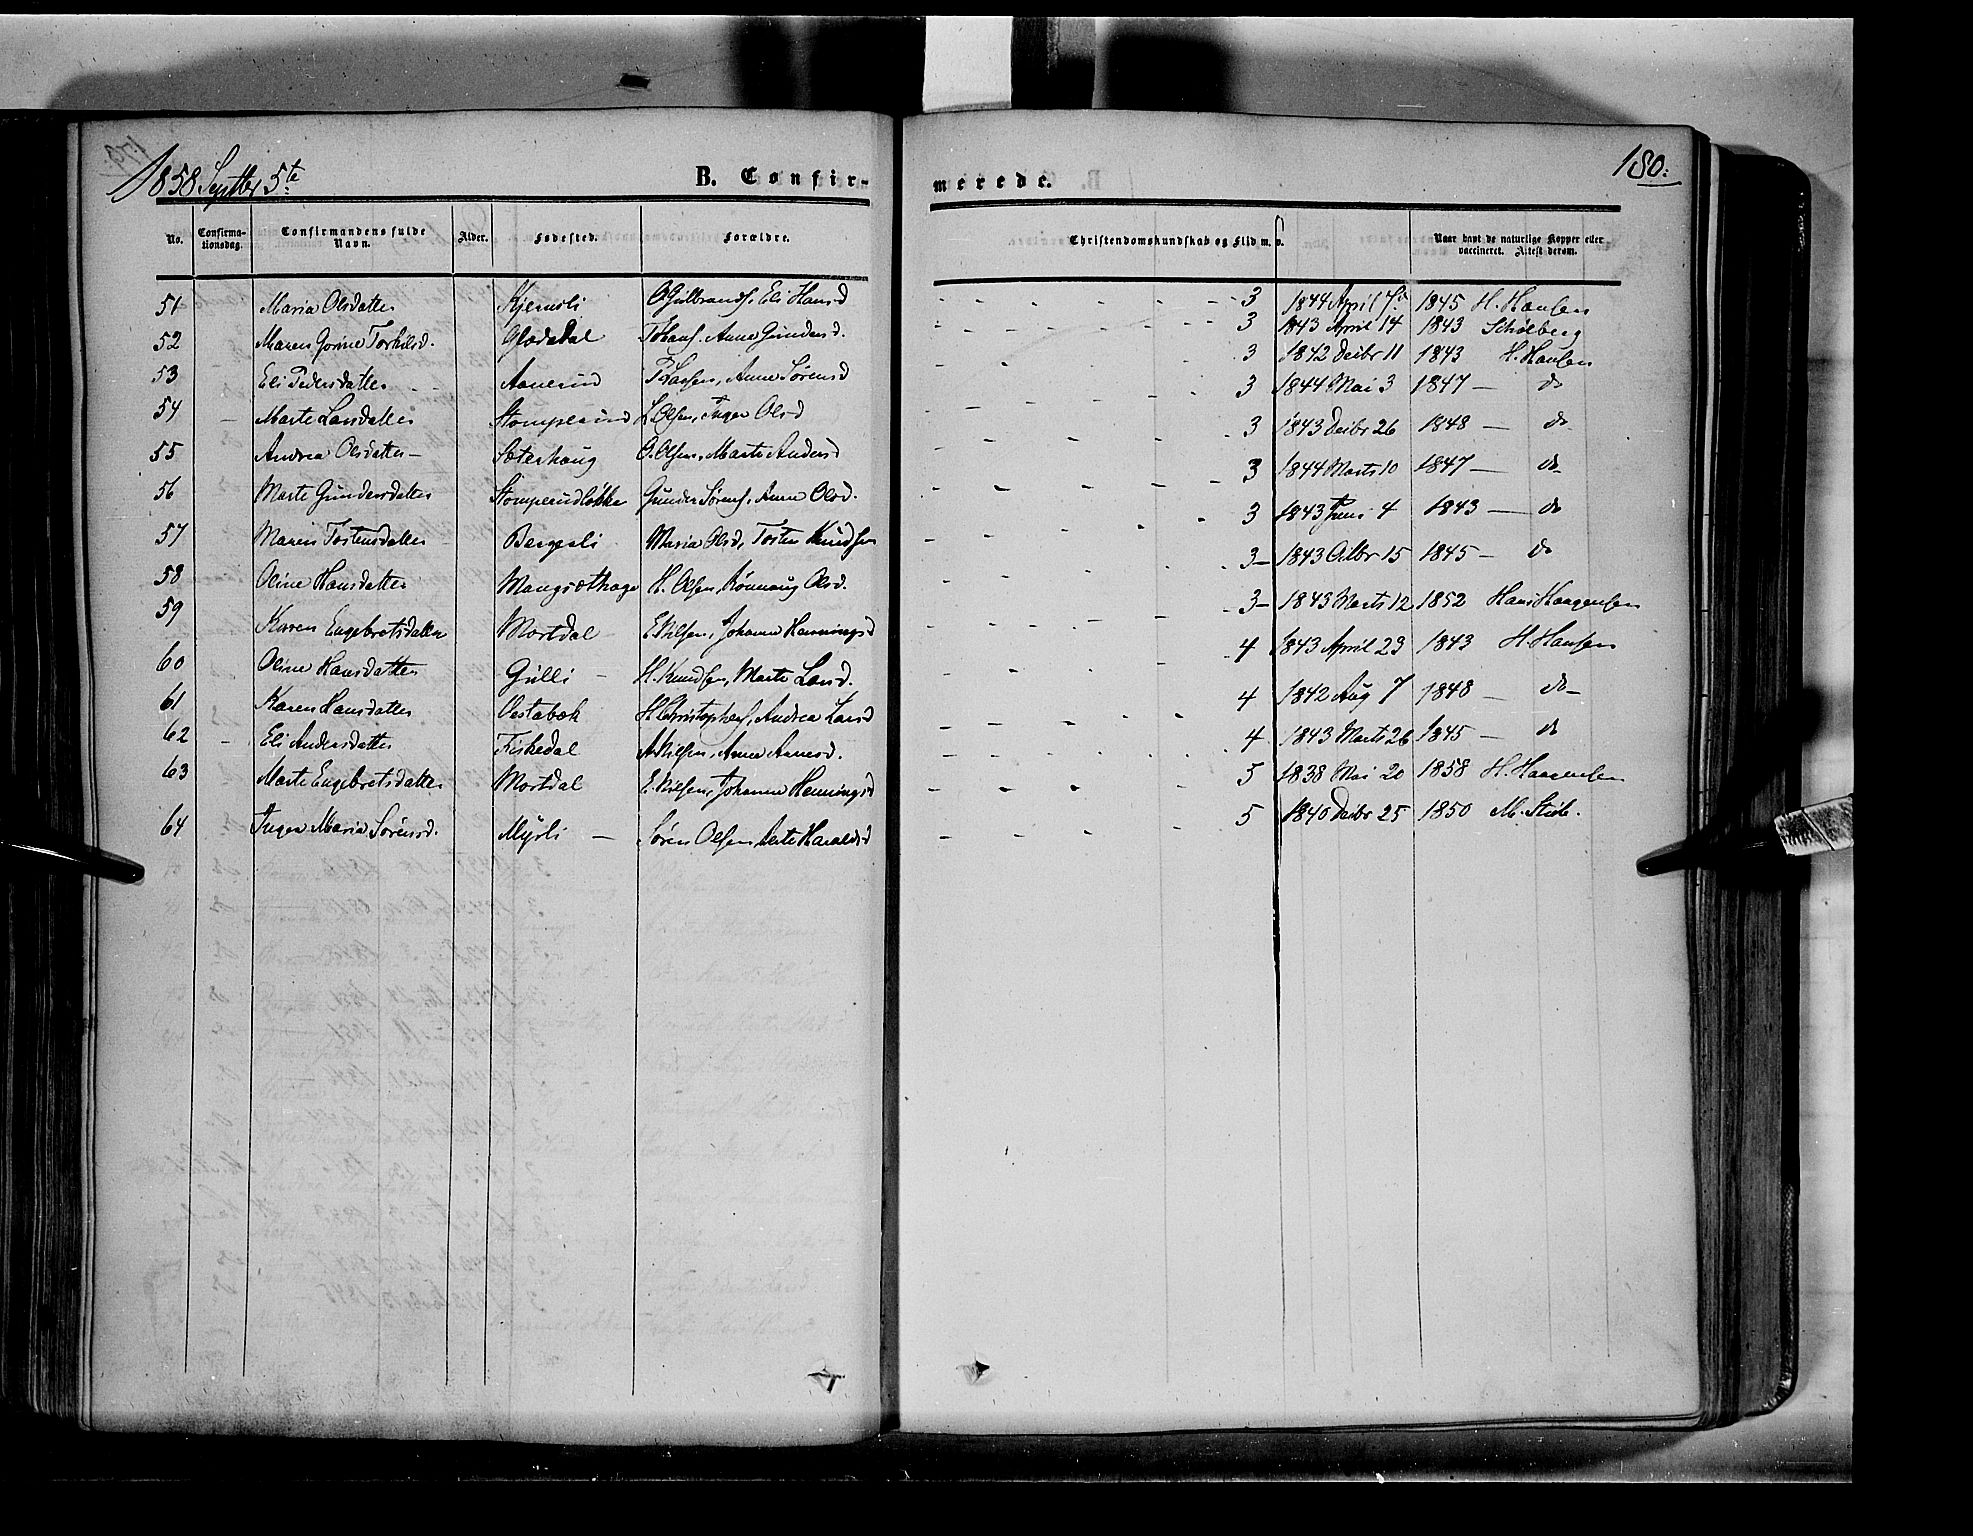 1858 Septbr 5te B. Confir- merede. 180:
No. Confirma-tionsdag. Confirmandens fulde Navn. Alder. Fødested. Forældre. Christendomskundskab og Flid m. v. Naar havt de naturlige Kopper eller vaccineret. Attest derom.
51 Maria Olsdatter Kjernsli O Gulbrands. Eli Hansd 3 1844 April 7 1845 H. Hansen
52 Maren Gorine Torkilsd. Glædal T Hans. Anne Gundersd. 3 1843 April 14 1843 Schølberg
53 Eli Pedersdatter Aanerud Anne Sørensd 3 1842 Decbr 11 1843 H. Hansen
54 Marte Larsdatter Stomperud L Olsen, Inger Olsd 3 1844 Mai 3 1847 — do
55 Andrea Olsdatter — Sæterhaug O. Olsen, Marte Andersd 3 1843 Decbr 26 1848 — do
56 Marte Gundersdatter Stomperudløkke Gunder Sørens. Anne Olsd. 3 1844 Marts 10 1847 — do
57 Maren Tostensdatter Bergerli Maria Olsd, Tosten Knudsen 3 1843 Juni 4 1843 — do
58 Oline Hansdatter Mangsæthage H. Olsen, Rønnaug Olsd. 3 — 1843 Octbr 15 1845 — do
59 Karen Engebretsdatter Mortdal E. Nilsen, Johanne Henningsd 3 — 1843 Marts 12 1852 Hans Haagensen
60 Oline Hansdatter Gulli — H. Knudsen, Marte Larsd. 4 1843 April 23 1843 H. Hansen
61 Karen Hansdatter Oestabæk H Christophers, Andrea Larsd 4 1842 Aug 7 1848 — do —
62 — Eli Andersdatter Fiskedal A Nilsen, Anne Arnesd. 4 1843 Marts 26 1845 — do
63 Marte Engebretsdatter Mortdal E. Nilsen, Johanne Henningsd 5 1838 Mai 20 1858 H. Haagensen
64 Inger Maria Sørensd. Myrli — Søren Olsen, Berte Haraldsd 5 1840 Decbr 25 1850 M.